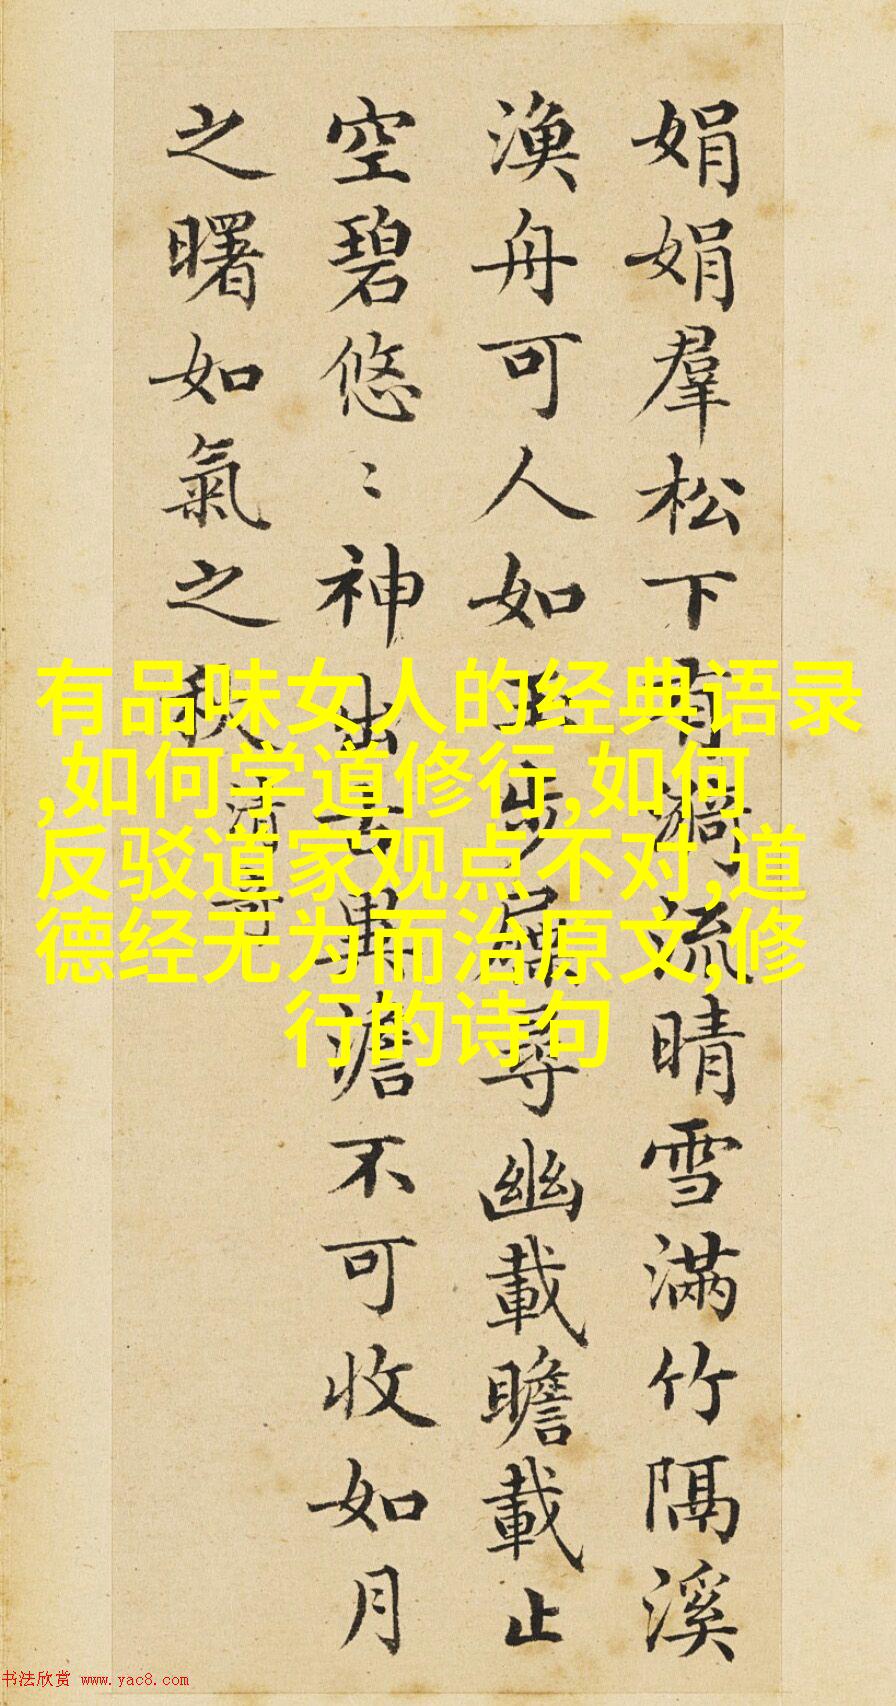 娟娟羣松下有漪流晴雪滿竹隔溪
漁舟可人如玉步屧尋幽載瞻載止
空碧悠〻神出古異澹不可收如月
之曙如氣之秋
清奇
有品味女人的经典语录
,如何学道修行,如何
反驳道家观点不对,道
德经无为而治原文,修
行的诗句
书法欣赏 www.yac8.com